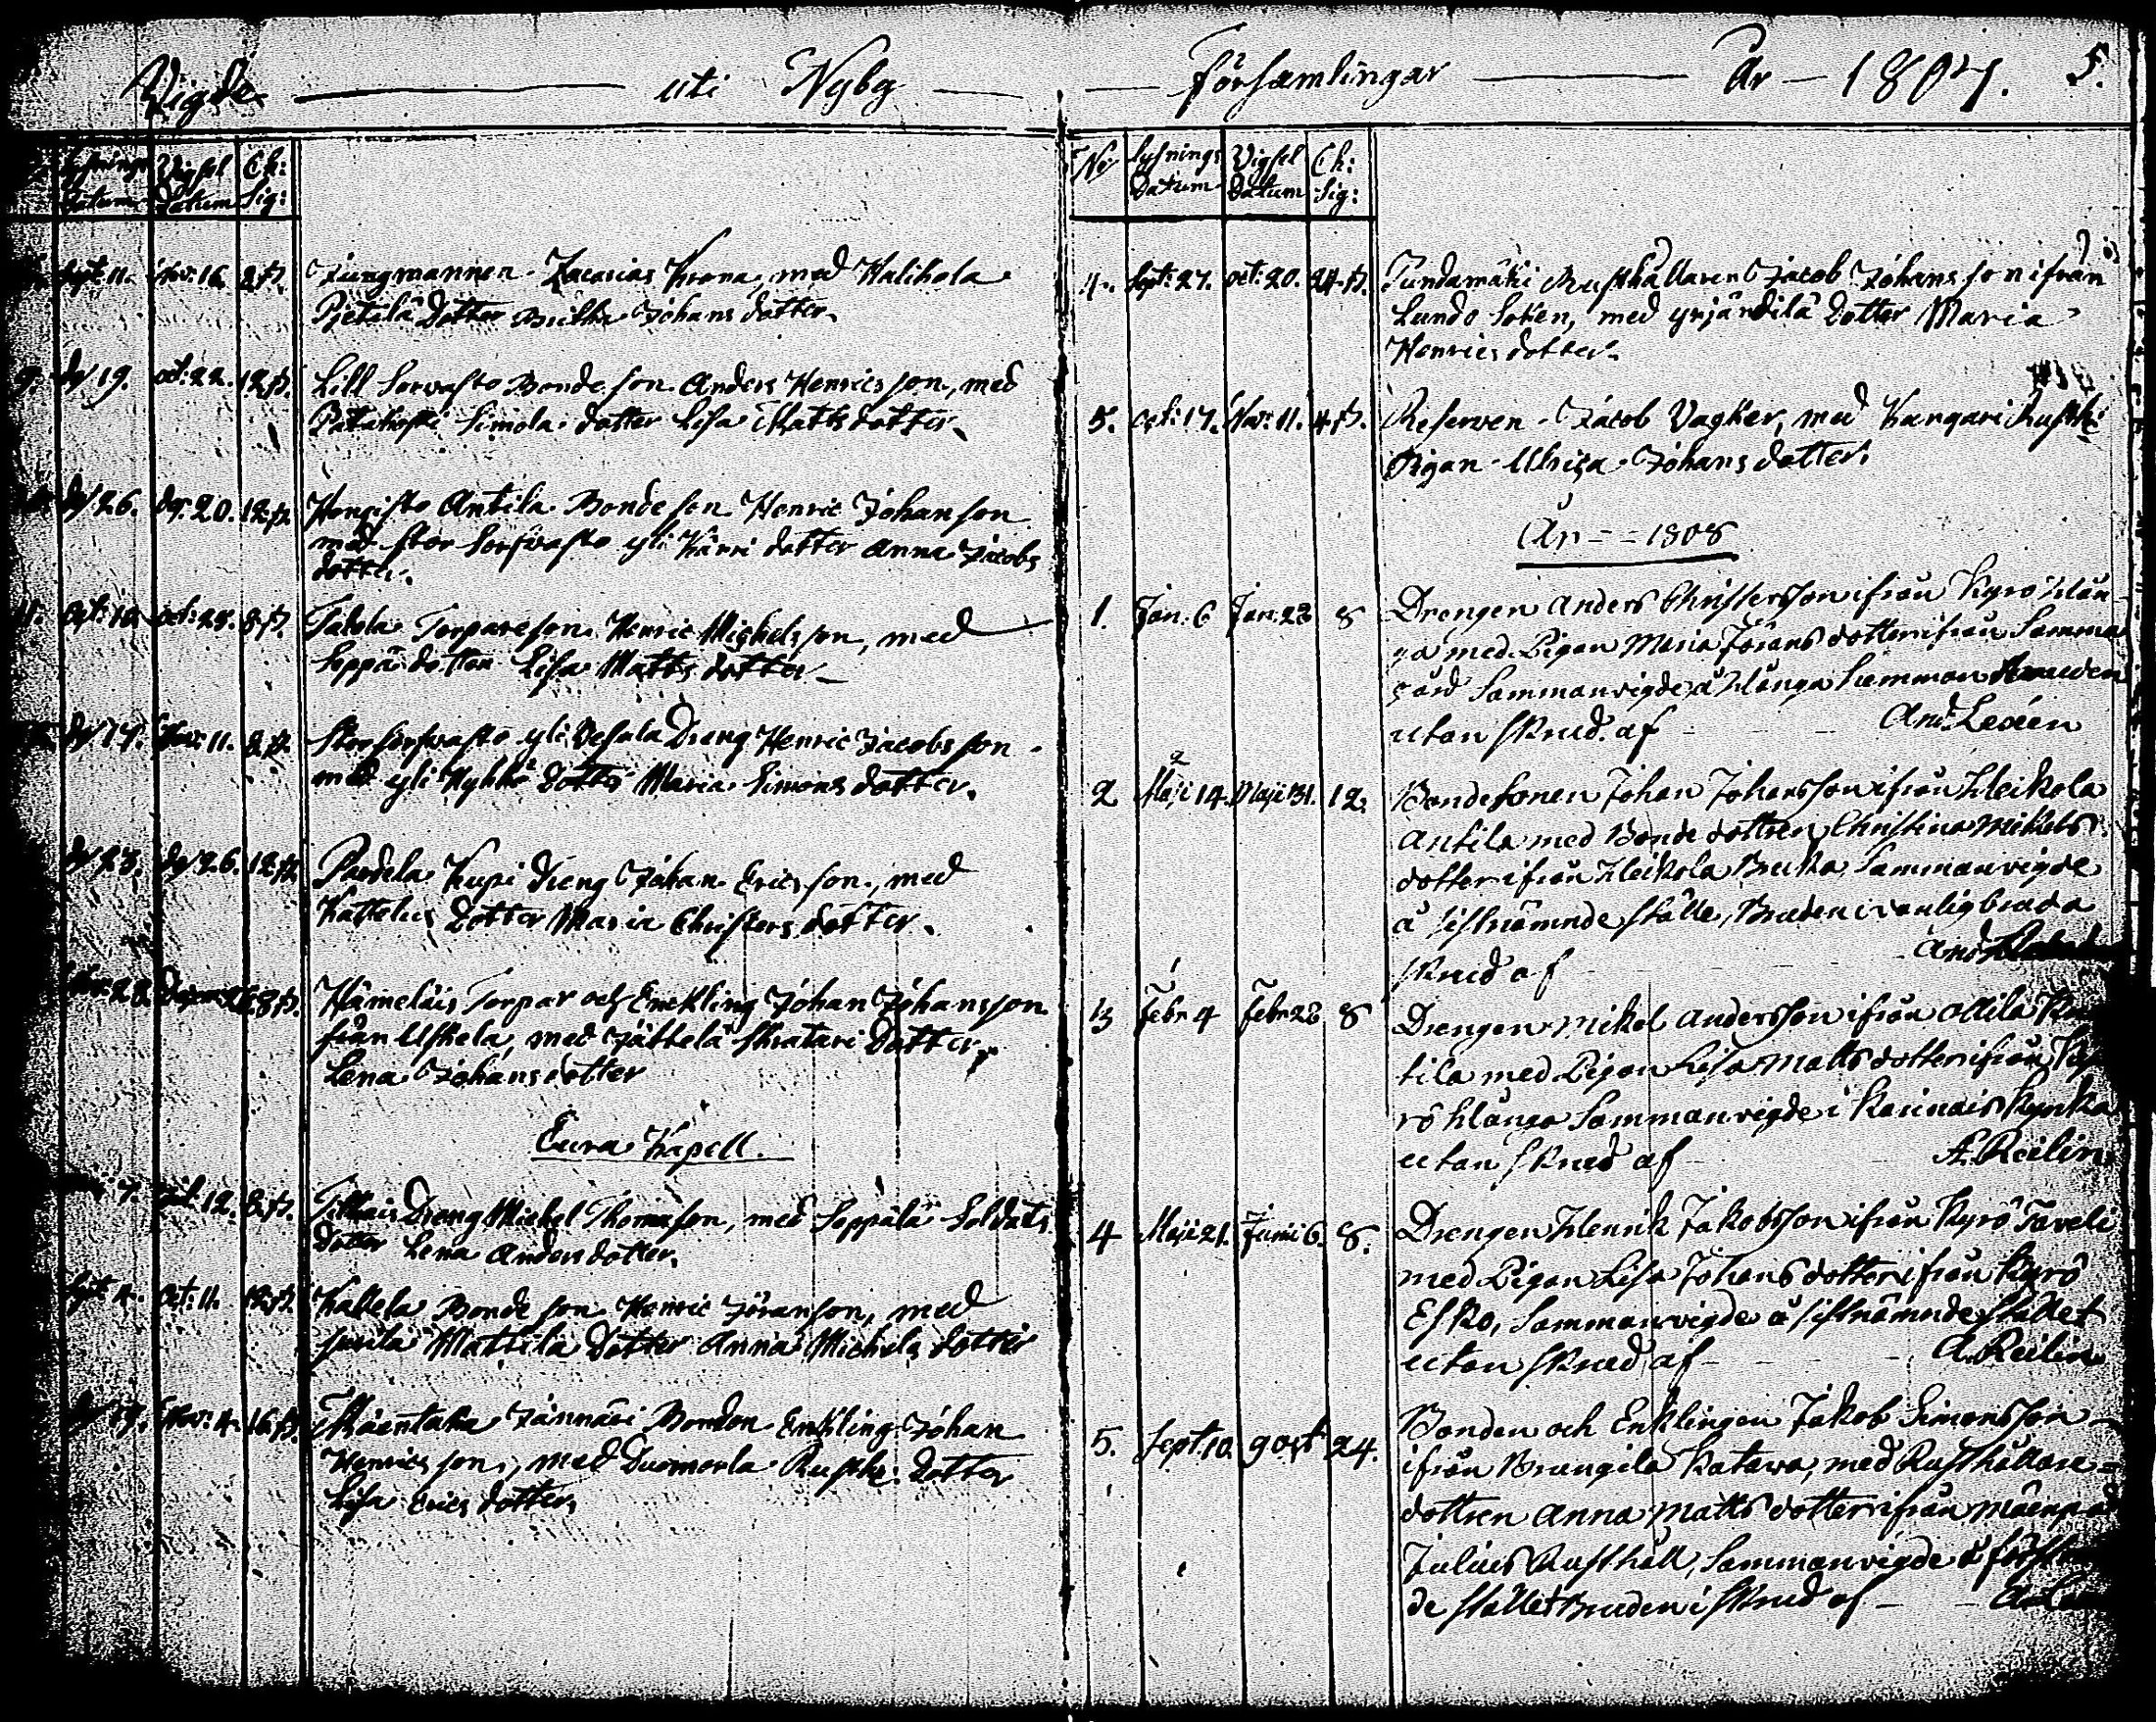 Vigde uti Nyby Församlingar År 1807. 5.
Lysnings Vigsel Ch:
Datum Datum Sig:
Sept: 11. Nov: 16. 8 β. Jungmannen Zacarias Krona, med Halikola
Pjetilä Dotter Johans dotter.
dy 19. oct: 22. 12 β. Lill Sorvasto Bonde son Anders Henrics son, med
Simola dotter Lisa Matts dotter.
dy 26. dy. 20. 12 β. Antila Bonde son Henric Johan son
med Stor yli Kärri dotter Anna Jacobs
dotter.
11. oct: 10. oct: 28. 8 β. Torpare son Henric Michels son, med
Seppä dotter Lisa Matts dotter
dy 17. Nov: 11. 8 β. yli Vesala Dreng Henric Jacobs son
med yli dotter Maria Simons dotter.
dy 23. dy 26. 12 β. Pardela Kupi dreng Johan Erics son, med
Kattelus Dotter Maria Christers dotter.
28. 8 β. Hämeläis Torpar och Enckling Johan Johansson
från Uskela, med Jättelä Dotter,
Lena Johans dotter
Eura Kapell.
7. 12. 8 β. Dreng Michel Thomasson, med Seppälä Soldats
Dotter Lena Anders dotter.
Sept. 4. Oct: 11. 12 β. Kallela Bonde son Henric Jöranson, med
Mattila Dotter Anna Michels dotter
dy 19. Nov: 4. 16 β. Mäentaka Jännäri Bonden Enkling Johan
Henrics son, med Duomorla Rusth: dotter
Lisa Erics dotter,
No Lysnings Vigsel Ch:
Datum Datum Sig:
4. Sept: 27. oct: 20. 24 β. Tundamäki Rusthållaren Jacob Johans son ifrån
Lundo Soken, med yrjändilä dotter Maria
Henrics dotter.
5. oct: 17. Nov: 11. 4 β. Reserven Jacob Vagker, med Kangari Rusth:
Pigan Ulrica Johans dotter.
År = = 1808
1. Jan: 6 Jan: 28 8 Drengen Anders Christersson ifrån Kyrö Hån
ga med Pigan Maria Jörans dotter ifrån Samma
gård Sammanvigde å Hånga hemman Bruden
utan skrud. af And. Lexén
2 Maji 14. Maji 31. 12. Bondesonen Johan Johansson ifrån Heikola
Antila med Bonde dottren Christina Mikels
dotter ifrån Heikola Sammanvigde
å sistnämnde ställe, Bruden i vanlig bruda
skrud af And.
3 Febr 4 Febr 28 8 Drengen Mikel Andersson ifrån Ollila
tila med Pigan Lisa Matts dotter ifrån Ky
rö Hånga Sammanvigde i Karinais Kyrka
utan skrud af A. Reilin
4 Maji 21. Junii 6. 8. Drengen Henrik Jakobsson ifrån Kyrö Taveli
med Pigan Lisa Johans dotter ifrån Kyrö
Esko, Sammanvigde å sistnämnde stället
utan skrud af A. Reilin
5. Sept. 10. 9 oct 24. Bonden och Enklingen Jakob Simonsson
ifrån Brungila Katava, med Rusthållare
dottren Anna Matts dotter ifrån
Julius Rusthåll, Sammanvigde å
de stället Bruden i skrud af